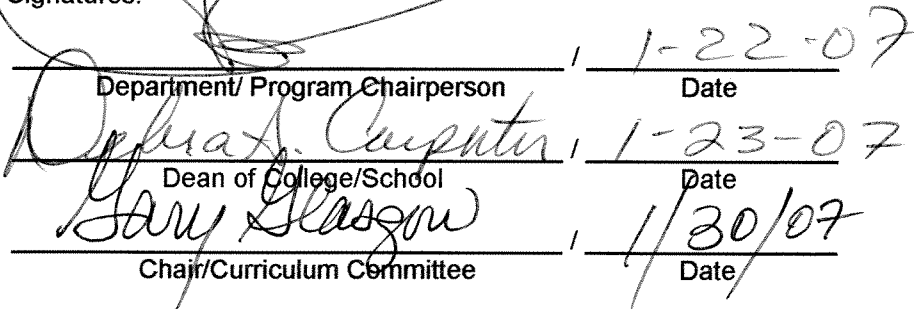 Signatures:
/ 1-22-07
Department/ Program Chairperson Date
Debra A. Carpenter / 1-23-07
Dean of College/School Date
Gary Glasgow / 1/30/07
Chair/Curriculum Committee Date